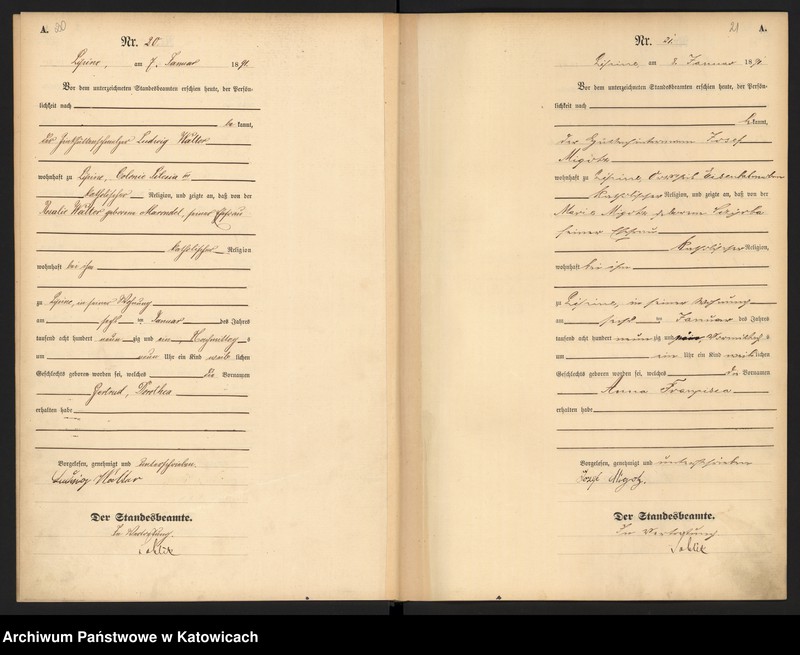 A. 20
Nr. 20.
Lipine, am 7. Januar 1891.
Vor dem unterzeichneten Standesbeamten erschien heute, der Persön-
lichkeit nach
be kannt,
der Zinkhüttenschmelzer Ludwig Walter
wohnhaft zu Lipine, Colonie Silesia
katholischer Religion, und zeigte an, daß von der
Rosalie Walter geborenen seiner Ehefrau
katholischer Religion
wohnhaft bei ihm
zu Lipine, in seiner Wohnung
am sechs ten Januar des Jahres
tausend acht hundert neun zig und ein, Nachmittag s
um neun Uhr ein Kind weib lichen
Geschlechts geboren worden sei, welches die Vornamen
Gertrud, Dorothea
erhalten habe
Vorgelesen, genehmigt und unterschrieben.
Ludwig Walter
Der Standesbeamte.
In Vertretung.
21 A.
Nr. 21.
Lipine, am 8. Januar 1891.
Vor dem unterzeichneten Standesbeamten erschien heute, der Persön-
lichkeit nach
be kannt,
der Josef
Migotz
wohnhaft zu Lipine,
katholischer Religion, und zeigte an, daß von der
Marie Migotz geborenen
seiner Ehefrau
katholischer Religion,
wohnhaft bei ihm
zu Lipine, in seiner Wohnung
am sechs ten Januar des Jahres
tausend acht hundert neun zig und ein, Vormittag s
um ein Uhr ein Kind weib lichen
Geschlechts geboren worden sei, welches die Vornamen
Anna
erhalten habe
Vorgelesen, genehmigt und unterschrieben
Josef Migotz.
Der Standesbeamte.
In Vertretung
Archiwum Państwowe w Katowicach